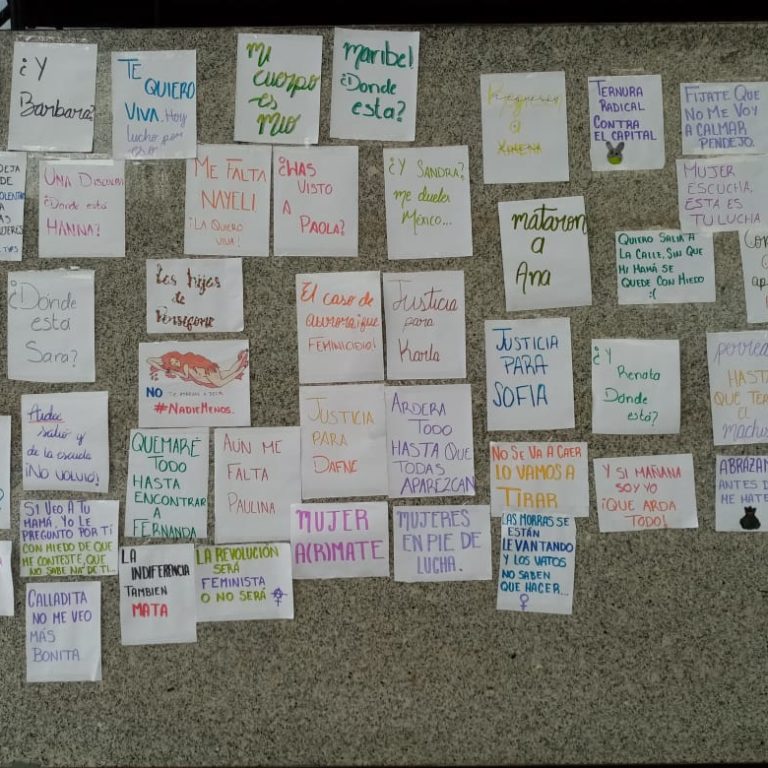 ¿Y
Barbara?
TE
QUIERO
VIVA. Hoy
lucho por
eso
mi
cuerpo
es
mio
maribel
¿Donde
esta?
Regresen
a
Ximena
TERNURA
RADICAL
CONTRA
EL CAPITAL
FIJATE QUE
NO ME VOY
A CALMAR
PENDEJO.
DEJA
DE
A
UNA DISCULPA
¿Donde está
HANNA?
ME FALTA
NAYELI
¡LA QUIERO
VIVA!
¿HAS
VISTO
A
PAOLA?
¿Y SANDRA?
me dueles
México...
MUJER
ESCUCHA,
ESTA ES
TU LUCHA
mataron
a
Ana
QUIERO SALIR A
LA CALLE, SIN QUE
MI MAMÁ SE
QUEDE CON MIEDO
:(
¿Dónde
está
Sara?
Las hijas
de
Perséfone
El caso de
aurora ¡fue
FEMINICIDIO!
Justicia
para
Karla
JUSTICIA
PARA
SOFIA
¿Y
Renata
Donde
está?
perrea
HASTA
QUE TER
NO TE
#NADIEMENOS.
salió y
de la escuela
¡NO VOLVIÓ!
QUEMARÉ
TODO
HASTA
ENCONTRAR
A
FERNANDA
AÚN ME
FALTA
PAULINA
JUSTICIA
PARA
DAFNE
ARDERA
TODO
HASTA QUE
TODAS
APAREZCAN
NO SE VA A CAER
LO VAMOS A
TIRAR
Y SI MAÑANA
SOY YO
¡QUE ARDA
TODO!
ABRÁZAM
ANTES D
ME HATE
SI VEO A TU
MAMÁ, YO LE
PREGUNTO POR TÍ
CON MIEDO DE QUE
ME CONTESTE, QUE
NO SABE NA' DE TI...
LA
INDIFERENCIA
TAMBIEN
MATA
LA REVOLUCIÓN
SERÁ
FEMINISTA
O NO SERÁ
MUJER
A(RIMATE
MUJERES
EN PIE DE
LUCHA.
LAS MORRAS SE
ESTÁN
LEVANTANDO
Y LOS VATOS
NO SABEN
QUE HACER...
CALLADITA
NO ME VEO
MÁS
BONITA